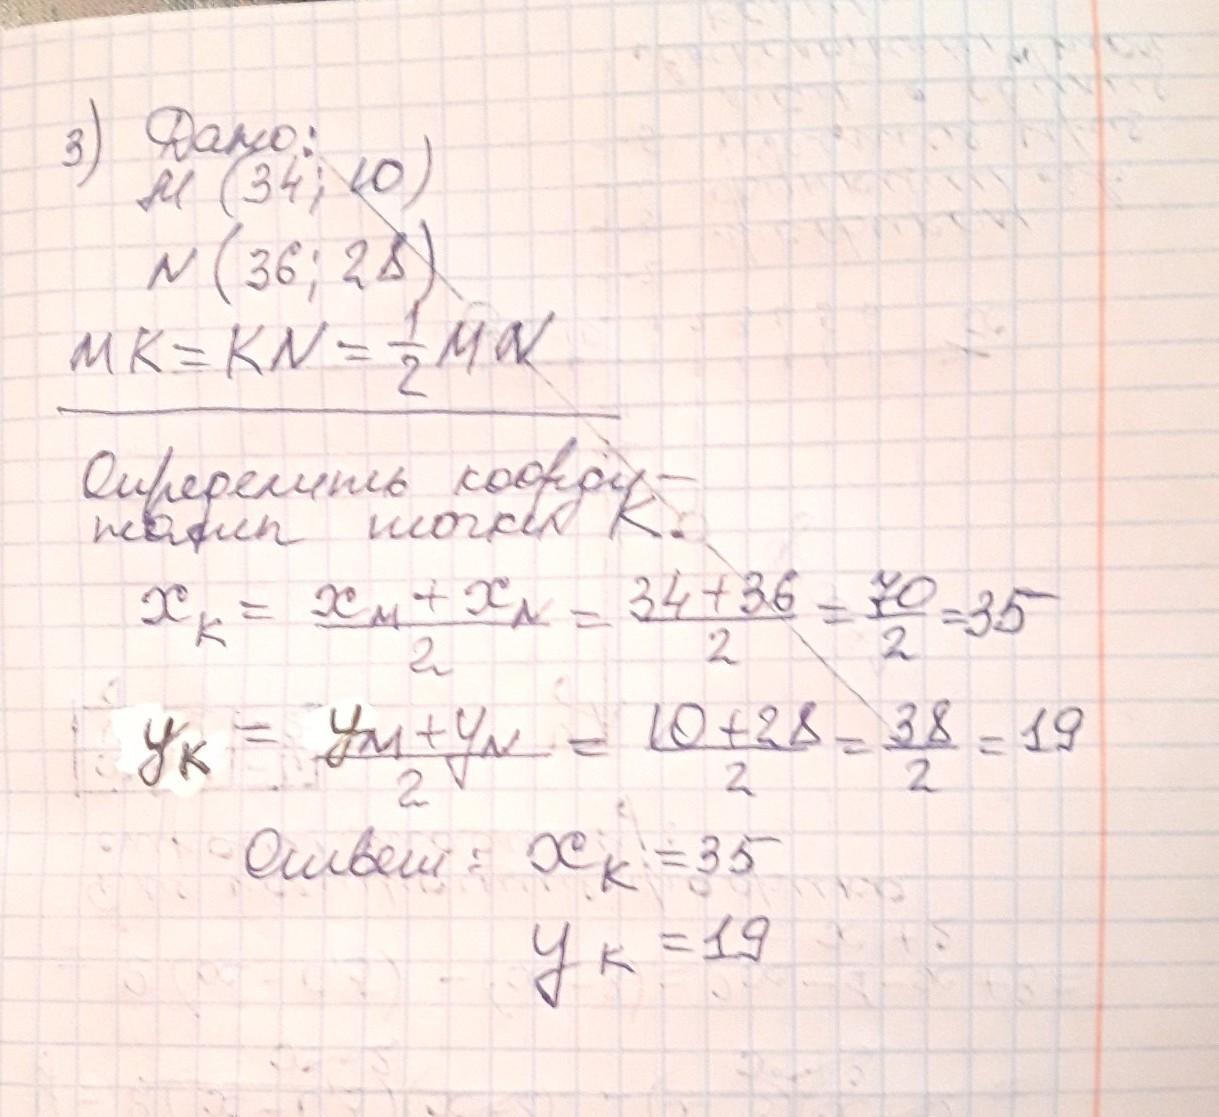 3) Дано:
M (34; 10)
N (36; 28)
MK = KN = 1/2 MN
Определить коорди-
наты точки K.
x_K = (x_M + x_N)/2 = (34+36)/2 = 70/2 = 35
y_K = (y_M + y_N)/2 = (10+28)/2 = 38/2 = 19
Ответ: x_K = 35
y_K = 19